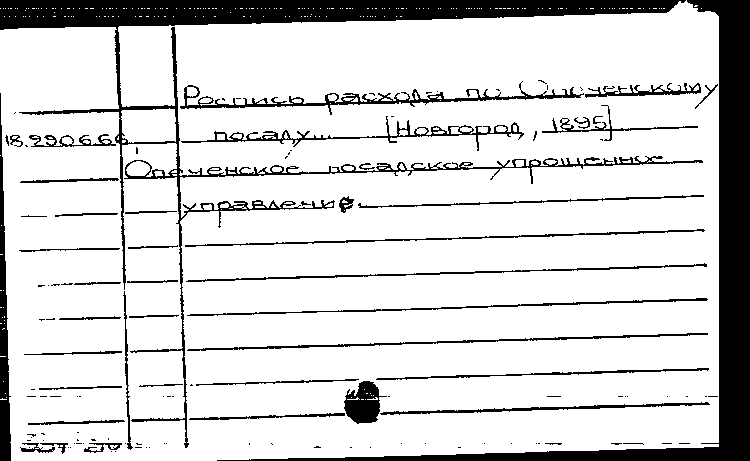 Роспись расхода по Опеченскому
18.2906.66, посаду... [Новгород, 1895]
Опеченское посадское упрощенное
управление.